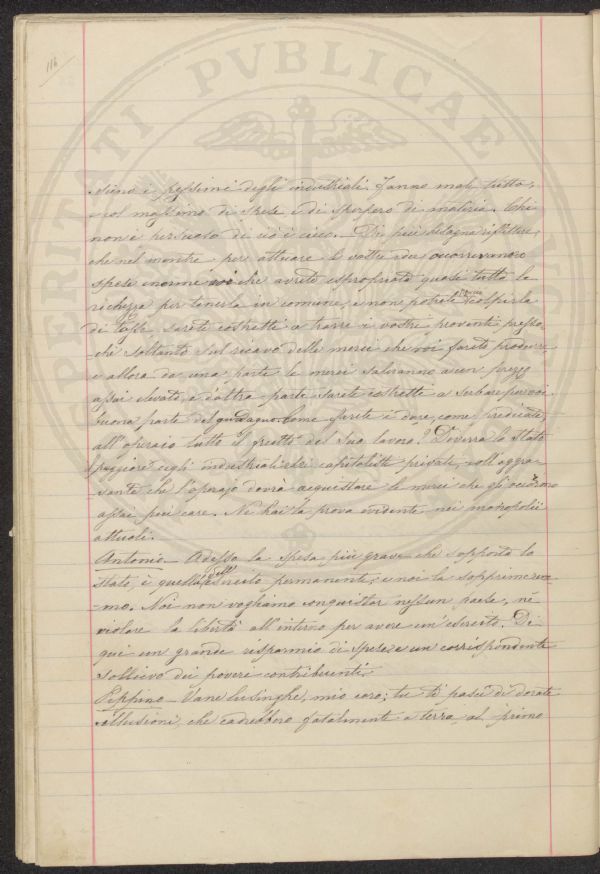 116
PROSPERITATI PVBLICAE
sieno i pessimi degli industriali. Fanno male tutto,
col massimo di spese e di sperpero di materia. Chi
non è persuaso di ciò è cieco. Di più bisogna riflettere,
che nel mentre per attuare le vostre idee occorrevanvi
spese enormi voi che avrete espropriato quasi tutta la
richezza per tenerla in comune, e non potrete colpirla
di tasse sarete costretti a trarre i vostri proventi presso
che soltanto sul ricavo delle merci che voi farete produrre,
e allora da una parte le merci saliranno a un prezzo
assai elevato, e d'altra parte sarete costretti a serbare per voi
buona parte del guadagno. Come farete a dare, come predicate,
all'operaio tutto il frutto del suo lavoro? Diverrà lo Stato
peggiore degli industriali e dei capitalisti privati, coll'aggra-
vante che l'operajo dovrà acquistare le merci che gli occorrono
assai più care. Ne hai la prova evidente nei monopolii
attuali.
Antonio - Adesso la spesa più grave che sopporta lo
Stato, è quella dell' esercito permanente, e noi la sopprimere-
-mo. Noi non vogliamo conquistar nessun paese, nè
violare la libertà all'interno per avere un'esercito. Di
qui un grande risparmio di spese e un corrispondente
sollievo dei poveri contribuenti.
Peppino - Vane lusinghe, mio caro; tu ti pasci di dorate
illusioni, che cadrebbero fatalmente a terra al primo